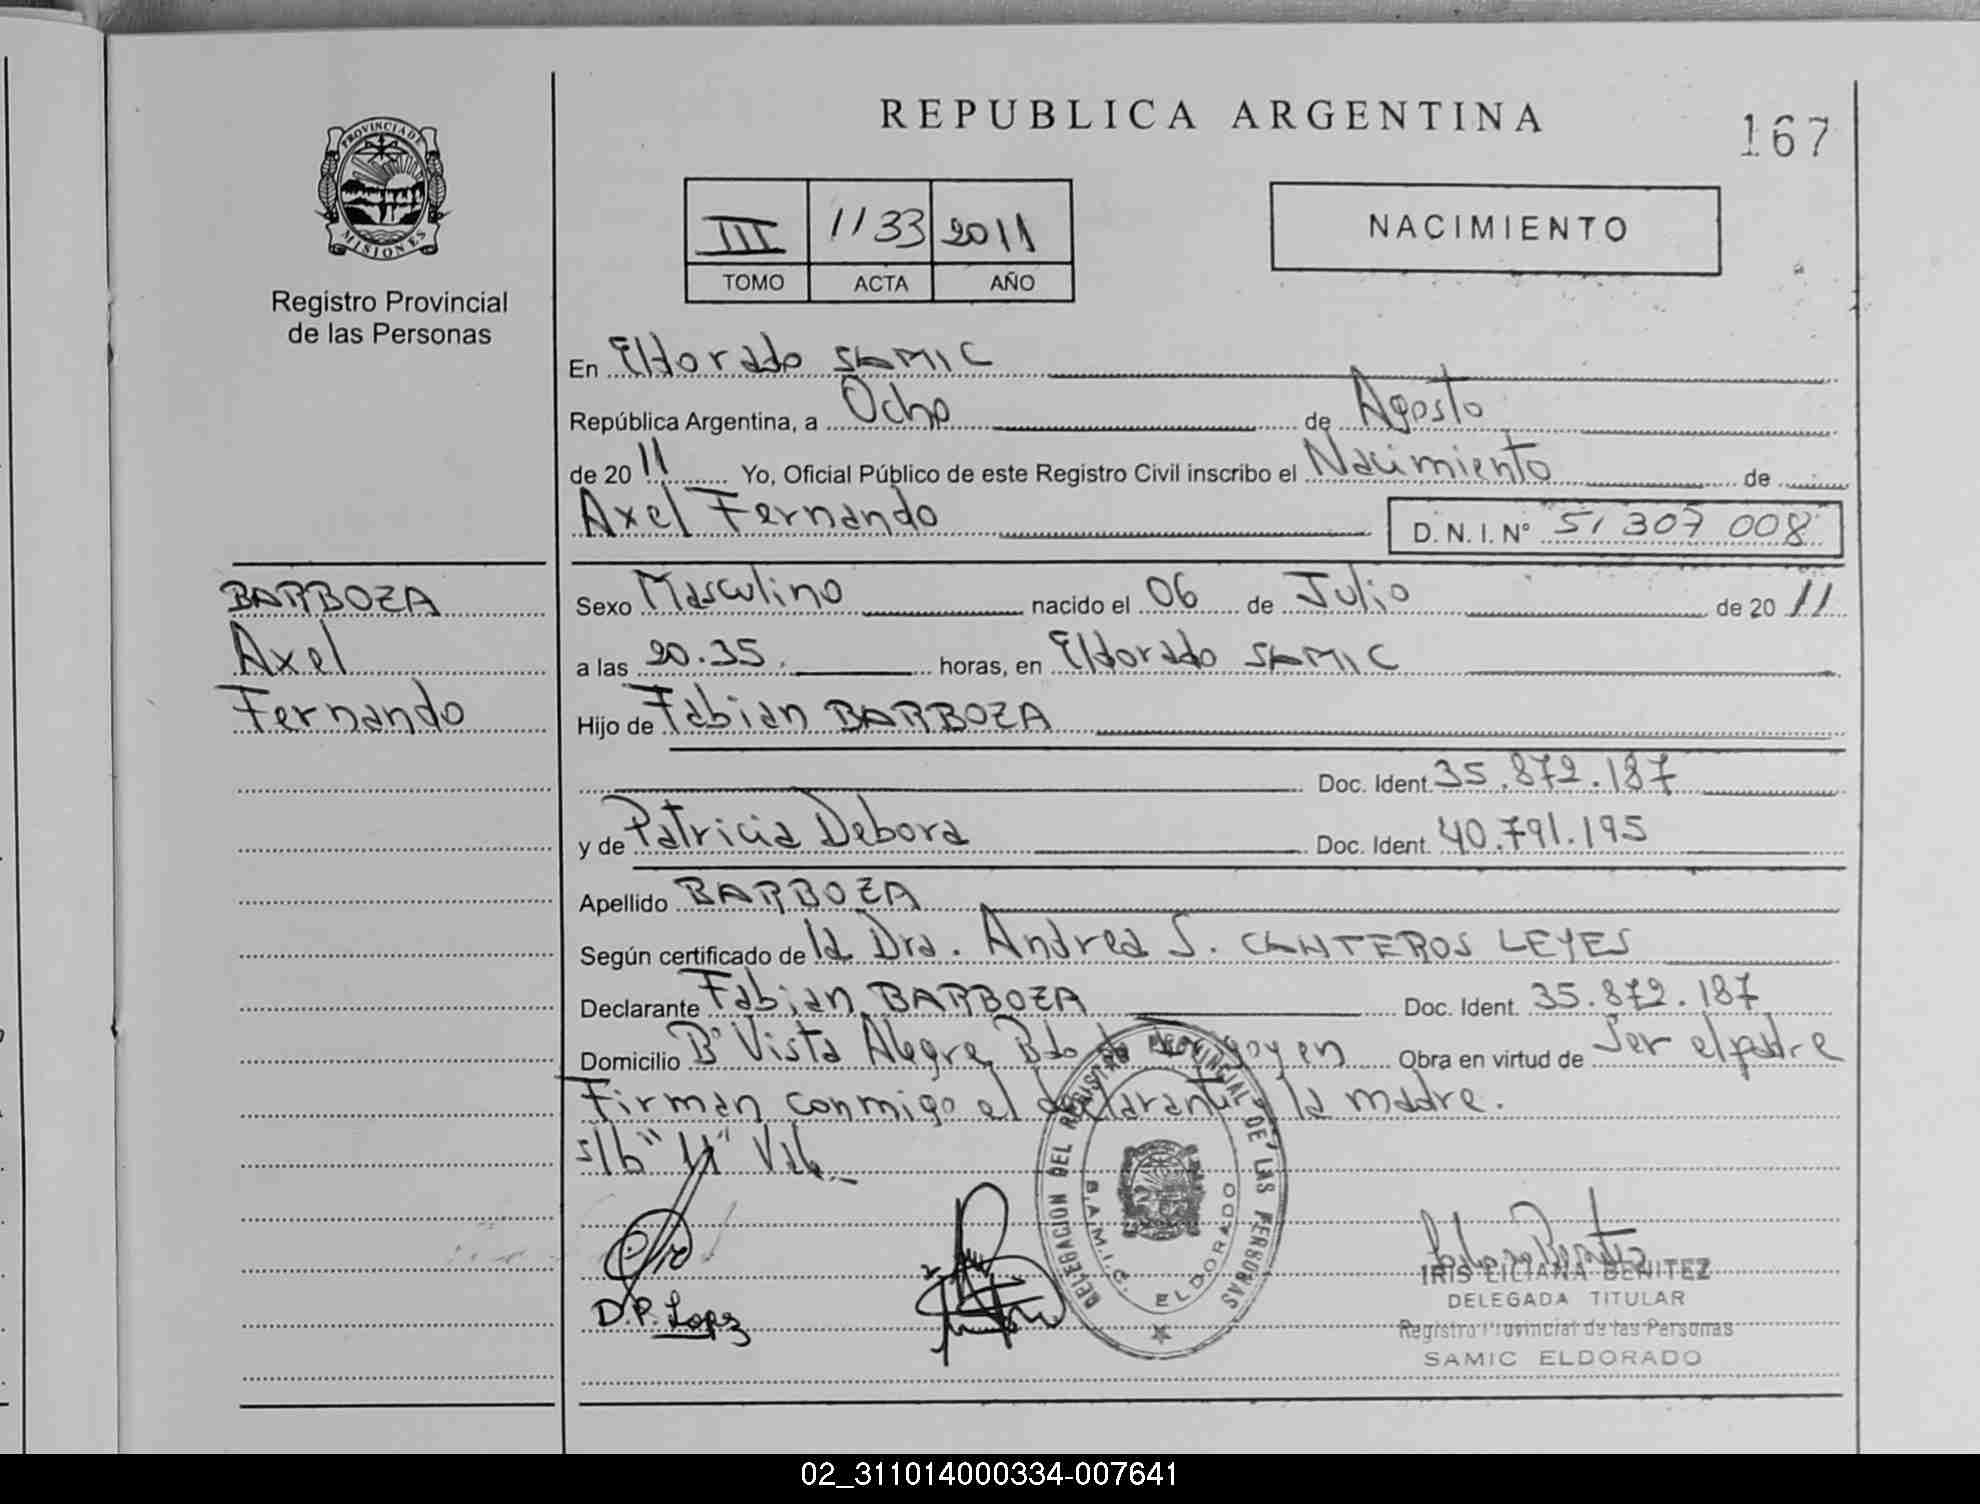 REPUBLICA ARGENTINA
167
PROVINCIA DE MISIONES
Registro Provincial
de las Personas
III 1133 2011
TOMO ACTA AÑO
NACIMIENTO
En Eldorado SAMIC
República Argentina, a Ocho de Agosto
de 20 11 Yo, Oficial Público de este Registro Civil inscribo el Nacimiento de
Axel Fernando D.N.I. Nº 51 307 008
BARBOZA
Axel
Fernando
Sexo Masculino nacido el 06 de Julio de 20 11
a las 20.35. horas, en Eldorado SAMIC
Hijo de Fabian BARBOZA
Doc. Ident. 35.872.187
y de Patricia Debora Doc. Ident. 40.791.195
Apellido BARBOZA
Según certificado de la Dra. Andrea S. CANTEROS LEYES
Declarante Fabian BARBOZA Doc. Ident. 35.872.187
Domicilio Bº Vista Alegre Bdo de Obra en virtud de Ser el padre
Firman conmigo el declarante y la madre.
s/b "11" Vale
D.P. Lopez
DELEGACION DEL REGISTRO PROVINCIAL DE LAS PERSONAS
S.A.M.I.C. ELDORADO
IRIS LILIANA BENITEZ
DELEGADA TITULAR
Registro Provincial de las Personas
SAMIC ELDORADO
02_311014000334-007641